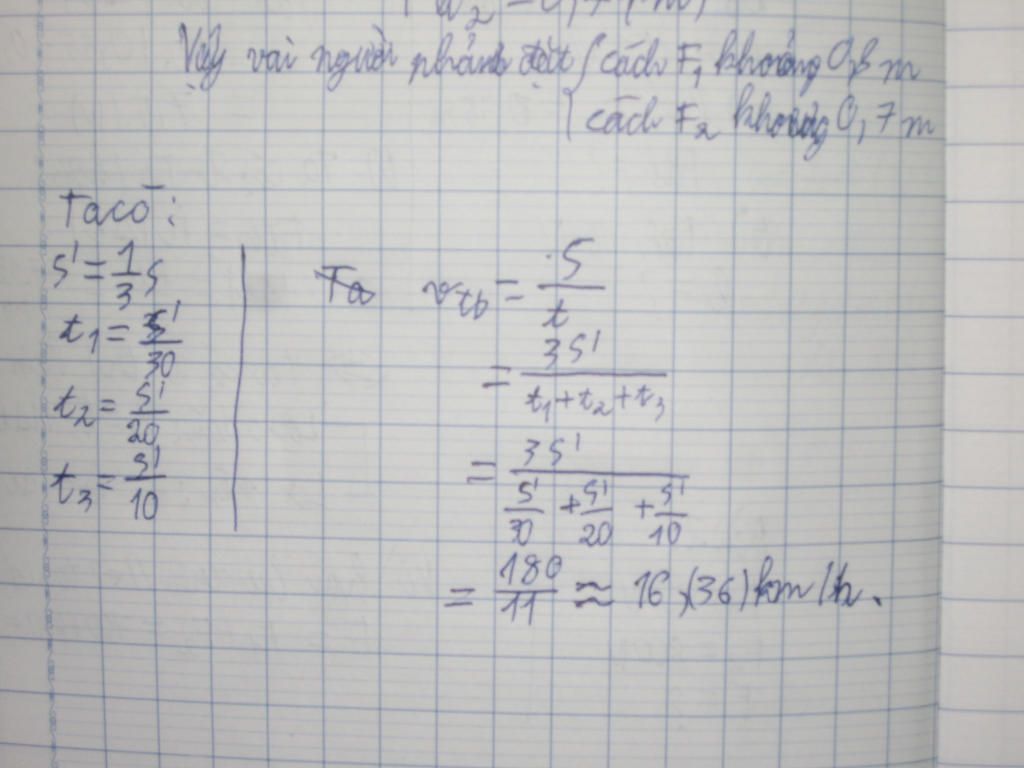 d₂ = 0,7 (m)
Vậy vai người phải đặt { cách F₁ khoảng 0,8 m
cách F₂ khoảng 0,7 m
Ta có :
S' = 1/3 S
t₁ = S'/30
t₂ = S'/20
t₃ = S'/10
Ta v_tb = S/t
= 3S'/(t₁ + t₂ + t₃)
= 3S'/(S'/30 + S'/20 + S'/10)
= 180/11 ≈ 16,(36) km/h.